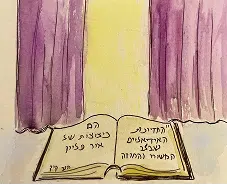 "החזיונות
האידיאליים
שבלב
המשורר והחוזה
הם
ניצוצות של
אור עליון